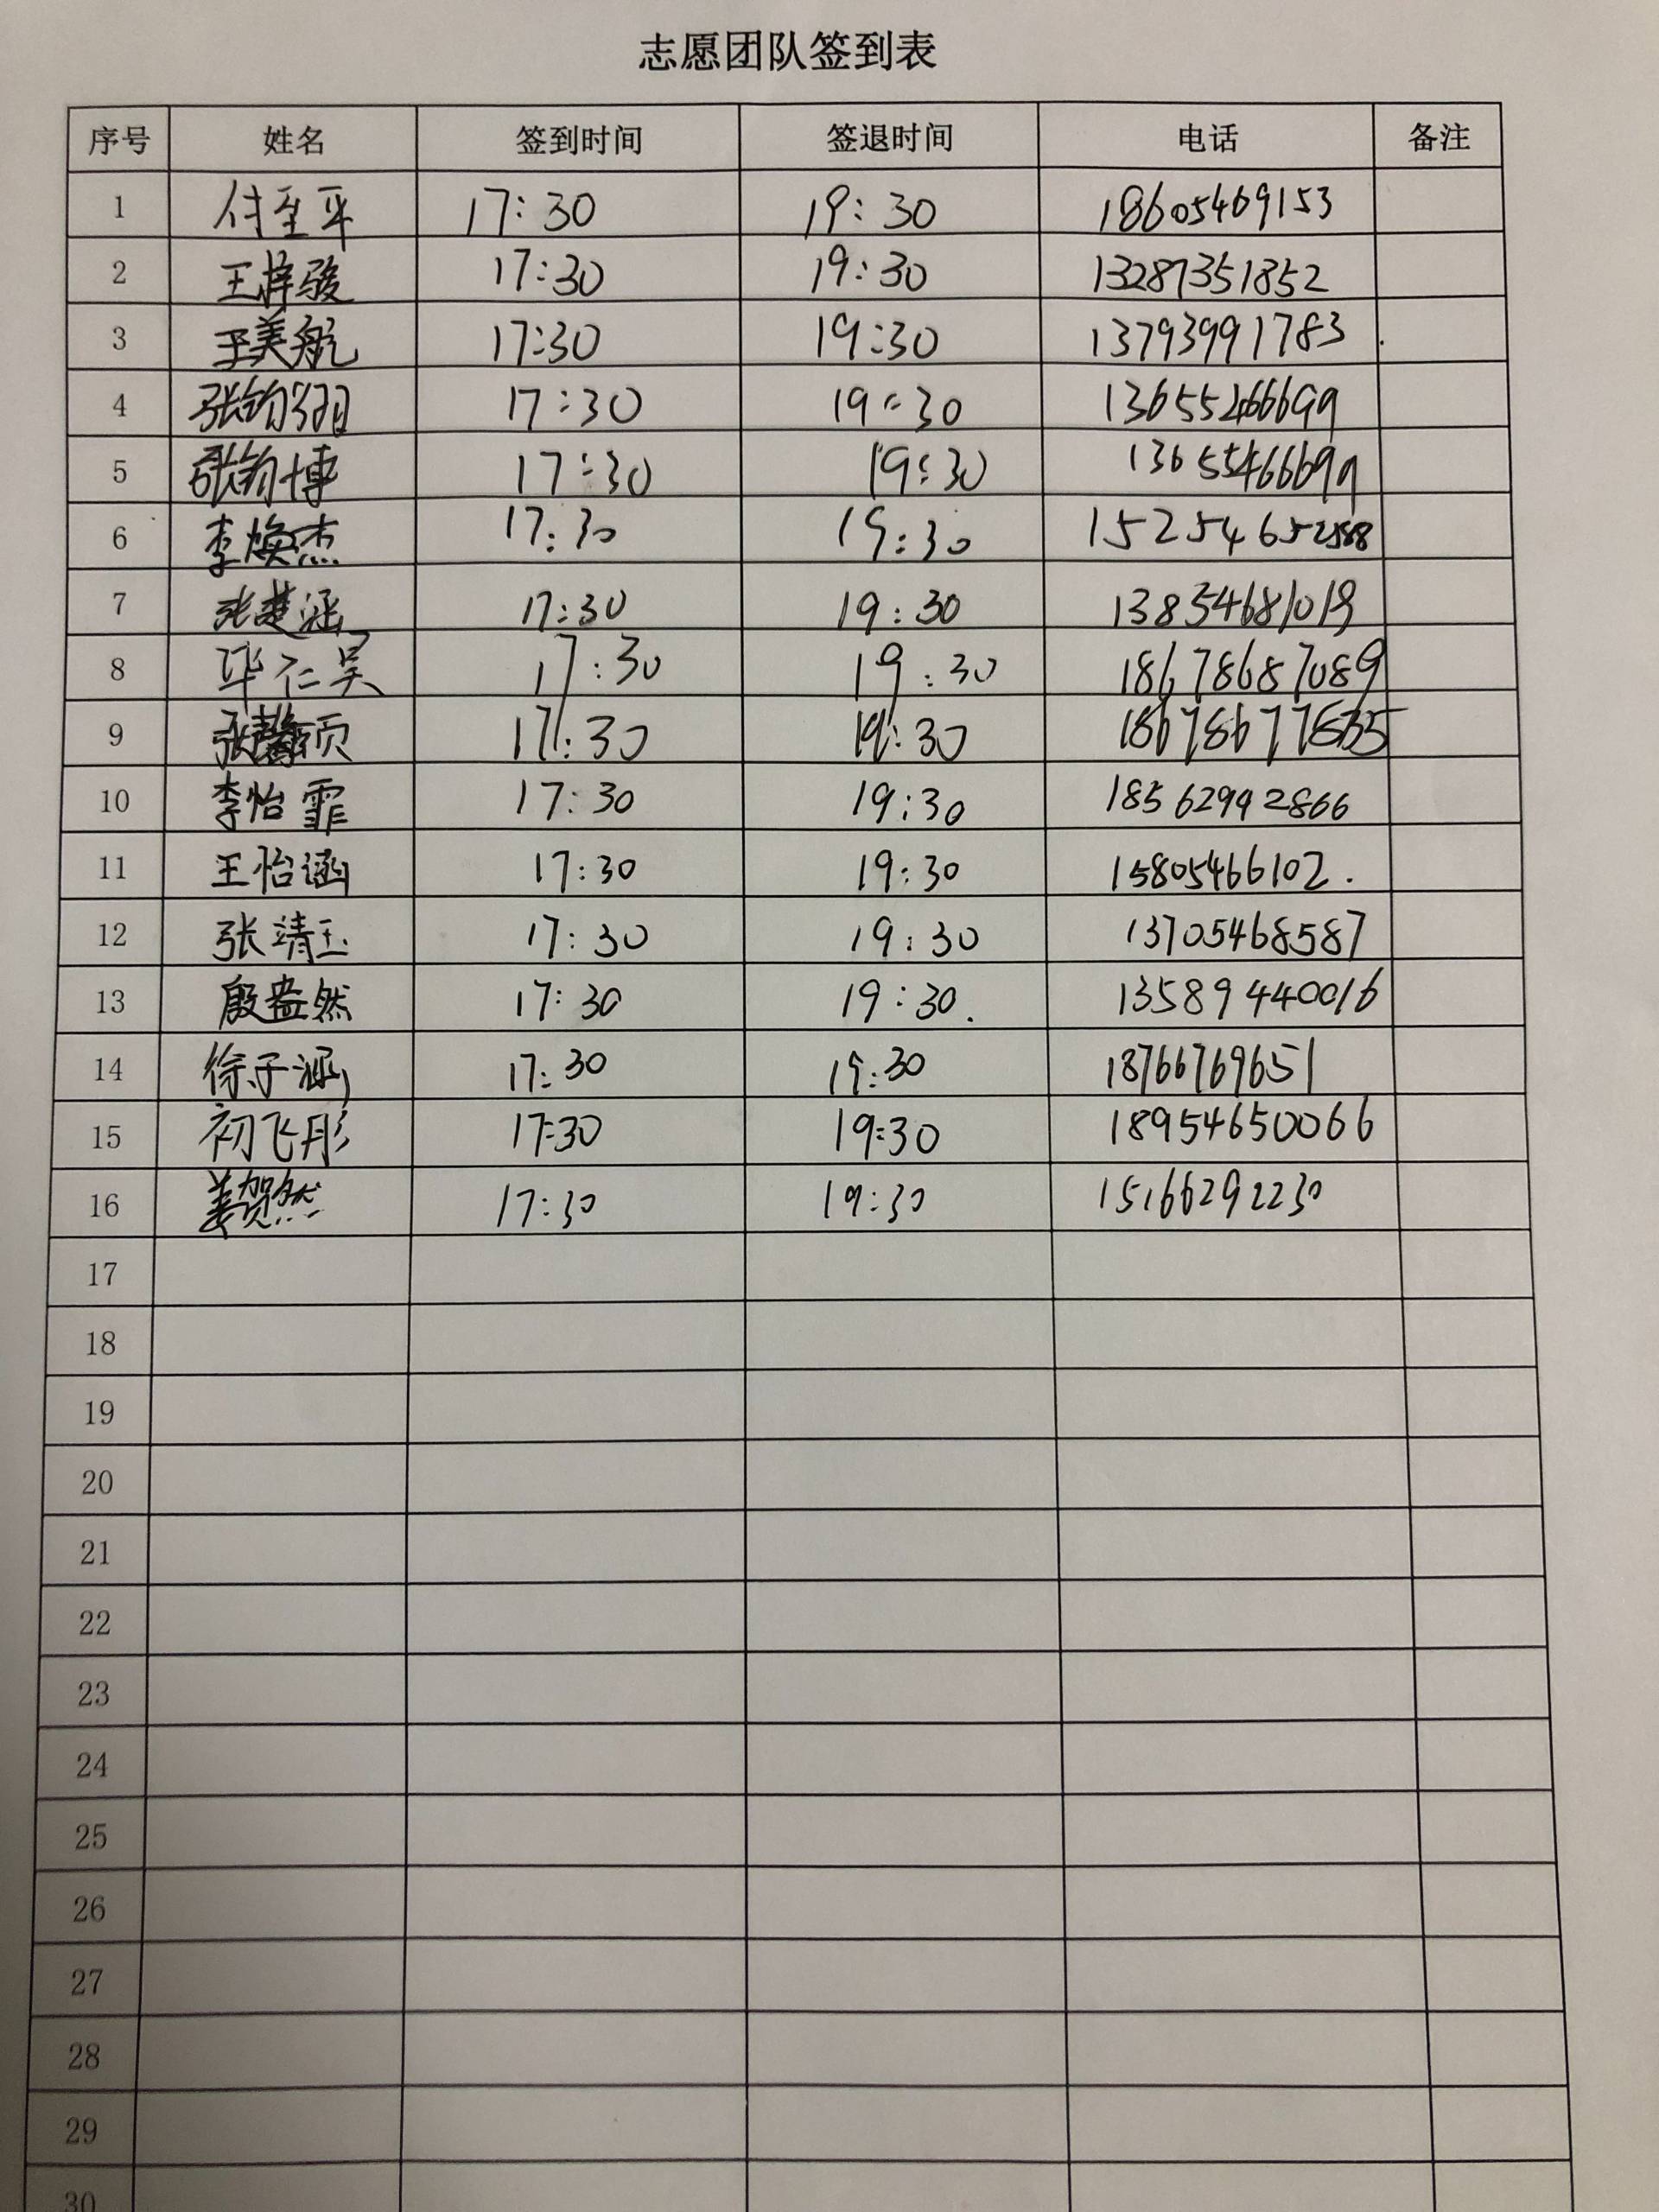 志愿团队签到表
序号 姓名 签到时间 签退时间 电话 备注
1 付至平 17:30 19:30 18605469153
2 王梓骏 17:30 19:30 13287351852
3 王美航 17:30 19:30 13793991783
4 张钧翔 17:30 19:30 13655466699
5 张钧博 17:30 19:30 13655466699
6 李焕杰 17:30 19:30
7 张楚涵 17:30 19:30 13854681019
8 毕仁昊 17:30 19:30 18678687089
9 17:30 19:30
10 李怡霏 17:30 19:30 18562992866
11 王怡涵 17:30 19:30 15805466102.
12 张靖玉 17:30 19:30 13705468587
13 殷盎然 17:30 19:30. 13589440016
14 徐子涵 17:30 19:30 18766769651
15 初飞彤 17:30 19:30 18954650066
16 姜贺然 17:30 19:30 15166292230
17
18
19
20
21
22
23
24
25
26
27
28
29
30